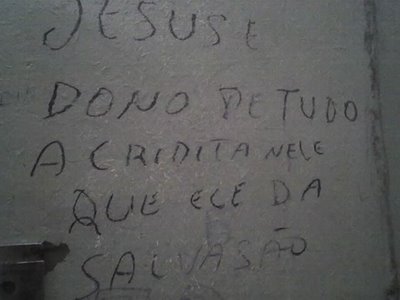 JESUS E
DONO DE TUDO
A CRIDITA NELE
QUE ELE DA
SALVASÃO